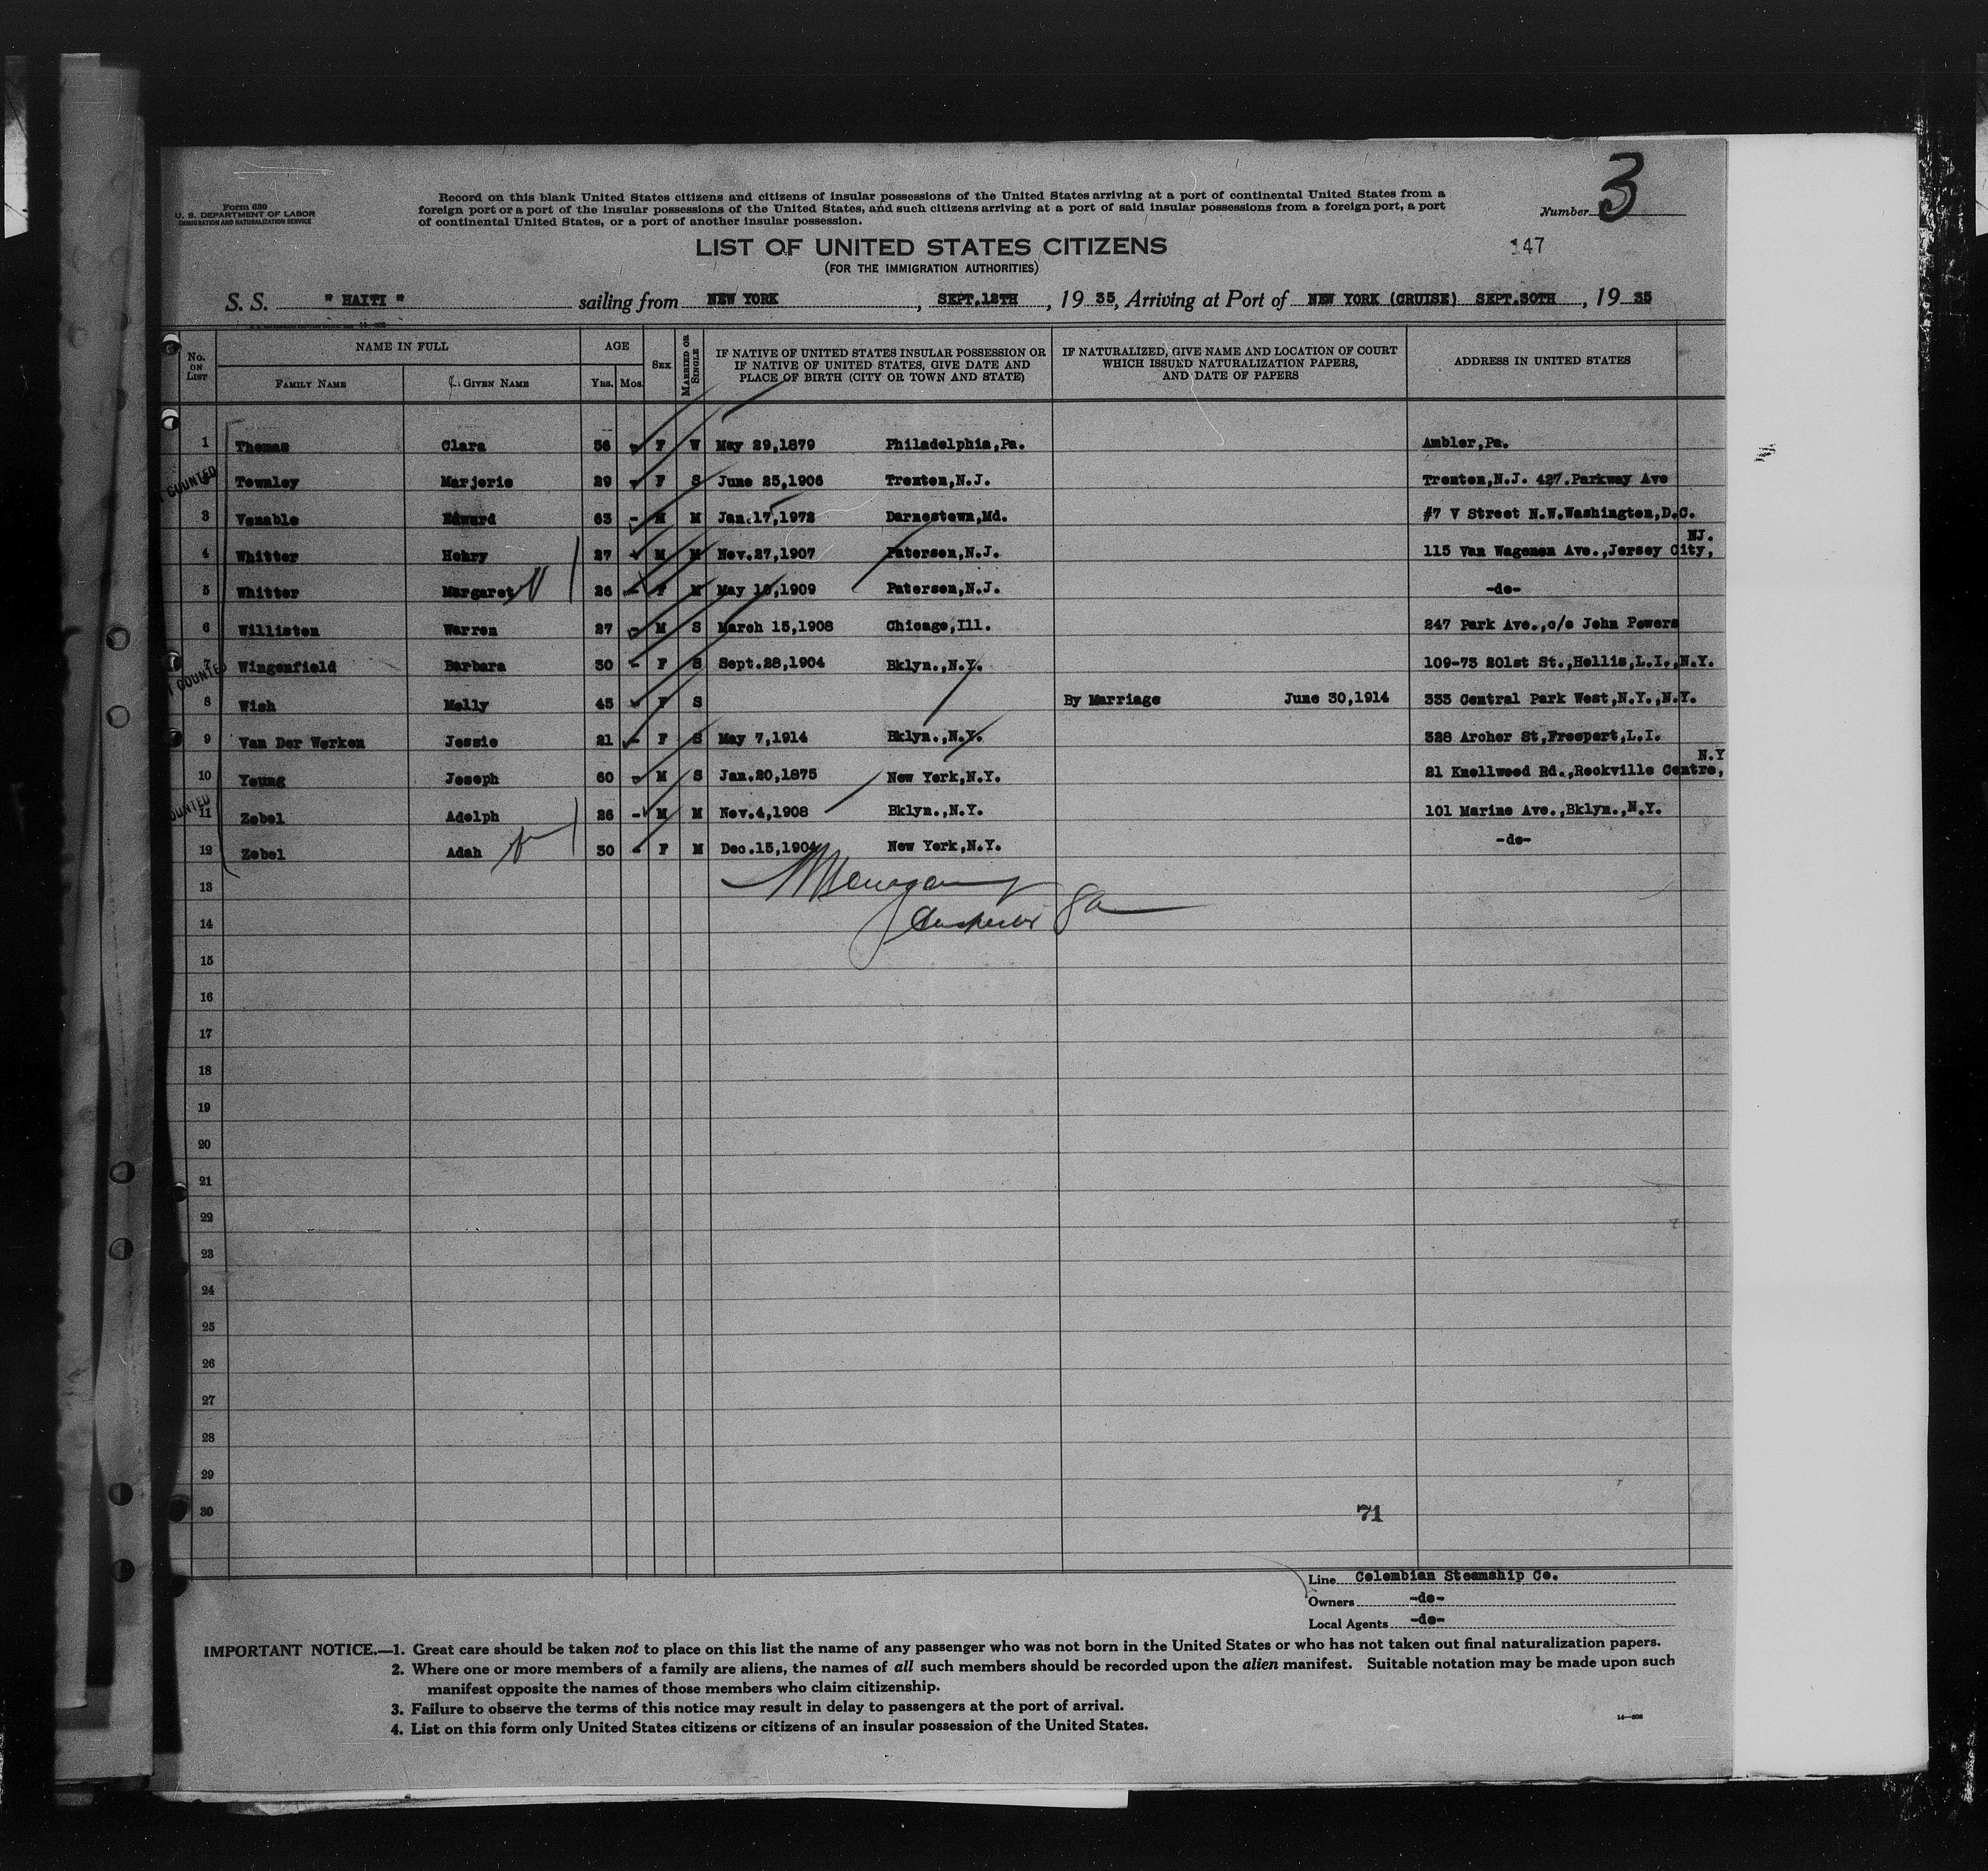 Form 630
U. S. DEPARTMENT OF LABOR
IMMIGRATION AND NATURALIZATION SERVICE
Record on this blank United States citizens and citizens of insular possessions of the United States arriving at a port of continental United States from a
foreign port or a port of the insular possessions of the United States, and such citizens arriving at a port of said insular possessions from a foreign port, a port
of continental United States, or a port of another insular possession.
Number 3
LIST OF UNITED STATES CITIZENS
(FOR THE IMMIGRATION AUTHORITIES)
147
S. S. " HAITI " sailing from NEW YORK, SEPT.12TH, 1935, Arriving at Port of NEW YORK (CRUISE) SEPT.30TH, 1935
No. ON LIST
NAME IN FULL
FAMILY NAME
GIVEN NAME
AGE
YRS. MOS.
SEX
MARRIED OR SINGLE
IF NATIVE OF UNITED STATES INSULAR POSSESSION OR
IF NATIVE OF UNITED STATES, GIVE DATE AND
PLACE OF BIRTH (CITY OR TOWN AND STATE)
IF NATURALIZED, GIVE NAME AND LOCATION OF COURT
WHICH ISSUED NATURALIZATION PAPERS,
AND DATE OF PAPERS
ADDRESS IN UNITED STATES
1 Thomas Clara 56 - F W May 29,1879 Philadelphia,Pa. Ambler,Pa.
COUNTED Townley Marjorie 29 - F S June 25,1906 Trenton,N.J. Trenton,N.J. 427.Parkway Ave
3 Venable Edward 63 - M M Jan.17,1972 Darnestown,Md. #7 V Street N.W.Washington,D.C.
4 Whitter Henry 27 - M M Nov.27,1907 Paterson,N.J. 115 Van Wagenen Ave.,Jersey City, NJ.
5 Whitter Margaret 26 - F M May 10,1909 Paterson,N.J. -do-
6 Williston Warren 27 - M S March 15,1908 Chicago,Ill. 247 Park Ave.,c/o John Powers
7 COUNTED Wingenfield Barbara 30 - F S Sept.28,1904 Bklyn.,N.Y. 109-73 201st St.,Hollis,L.I.,N.Y.
8 Wish Molly 45 - F S By Marriage June 30,1914 333 Central Park West,N.Y.,N.Y.
9 Van Der Werken Jessie 21 - F S May 7,1914 Bklyn.,N.Y. 328 Archer St,Freeport,L.I.
10 Young Joseph 60 - M S Jan.20,1875 New York,N.Y. 21 Knollwood Rd.,Rockville Centre, N.Y
11 COUNTED Zobel Adolph 26 - M M Nov.4,1908 Bklyn.,N.Y. 101 Marine Ave.,Bklyn.,N.Y.
12 Zobel Adah 30 - F M Dec.15,1904 New York,N.Y. -do-
13
14
15
16
17
18
19
20
21
22
23
24
25
26
27
28
29
30
71
Line Colombian Steamship Co.
Owners -do-
Local Agents -do-
IMPORTANT NOTICE.—1. Great care should be taken not to place on this list the name of any passenger who was not born in the United States or who has not taken out final naturalization papers.
2. Where one or more members of a family are aliens, the names of all such members should be recorded upon the alien manifest. Suitable notation may be made upon such
manifest opposite the names of those members who claim citizenship.
3. Failure to observe the terms of this notice may result in delay to passengers at the port of arrival.
4. List on this form only United States citizens or citizens of an insular possession of the United States.
14—608